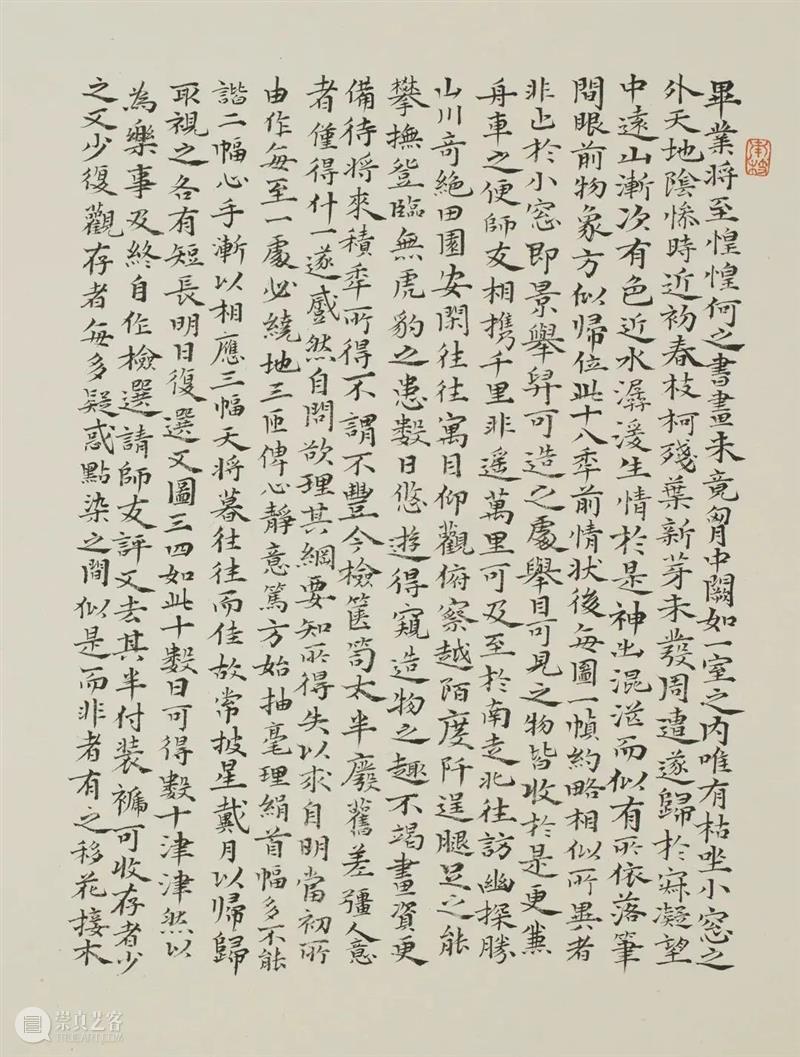 畢業將至惶惶何之書畫未竟胷中闕如一室之内唯有枯坐小窓之
外天地陰慘時近初春枝柯殘葉新芽未發周遭遂歸於寂凝望
中遠山漸次有色近水潺湲生情於是神出混沌而似有所依落筆
間眼前物象方似歸位此十八秊前情狀後每圖一幀約略相似所異者
非止於小窓即景舉舁可造之處舉目可見之物皆收於是更兼
舟車之便師友相攜千里非遥萬里可及至於南走北往訪幽探勝
山川奇絶田園安閑往往寓目仰觀俯察越陌度阡逞腿足之能
攀撫登臨無虎豹之患數日悠遊得窺造物之趣不竭畫資更
備待將來積秊所得不謂不豐今檢篋笥太半廢舊差彊人意
者僅得什一遂慼然自問欲理其綱要知所得失以求自明當初所
由作每至一處必繞地三匝俾心靜意篤方始抽毫理絹首幅多不能
諧二幅心手漸以相應三幅天將暮往往而佳故常披星戴月以歸歸
取視之各有短長明日復選又圖三四如此十數日可得數十津津然以
為樂事及終自作檢選請師友評又去其半付装褫可收存者少
之又少復觀存者每多疑惑點染之間似是而非者有之移花接木
崇真艺客
TRUEART.COM